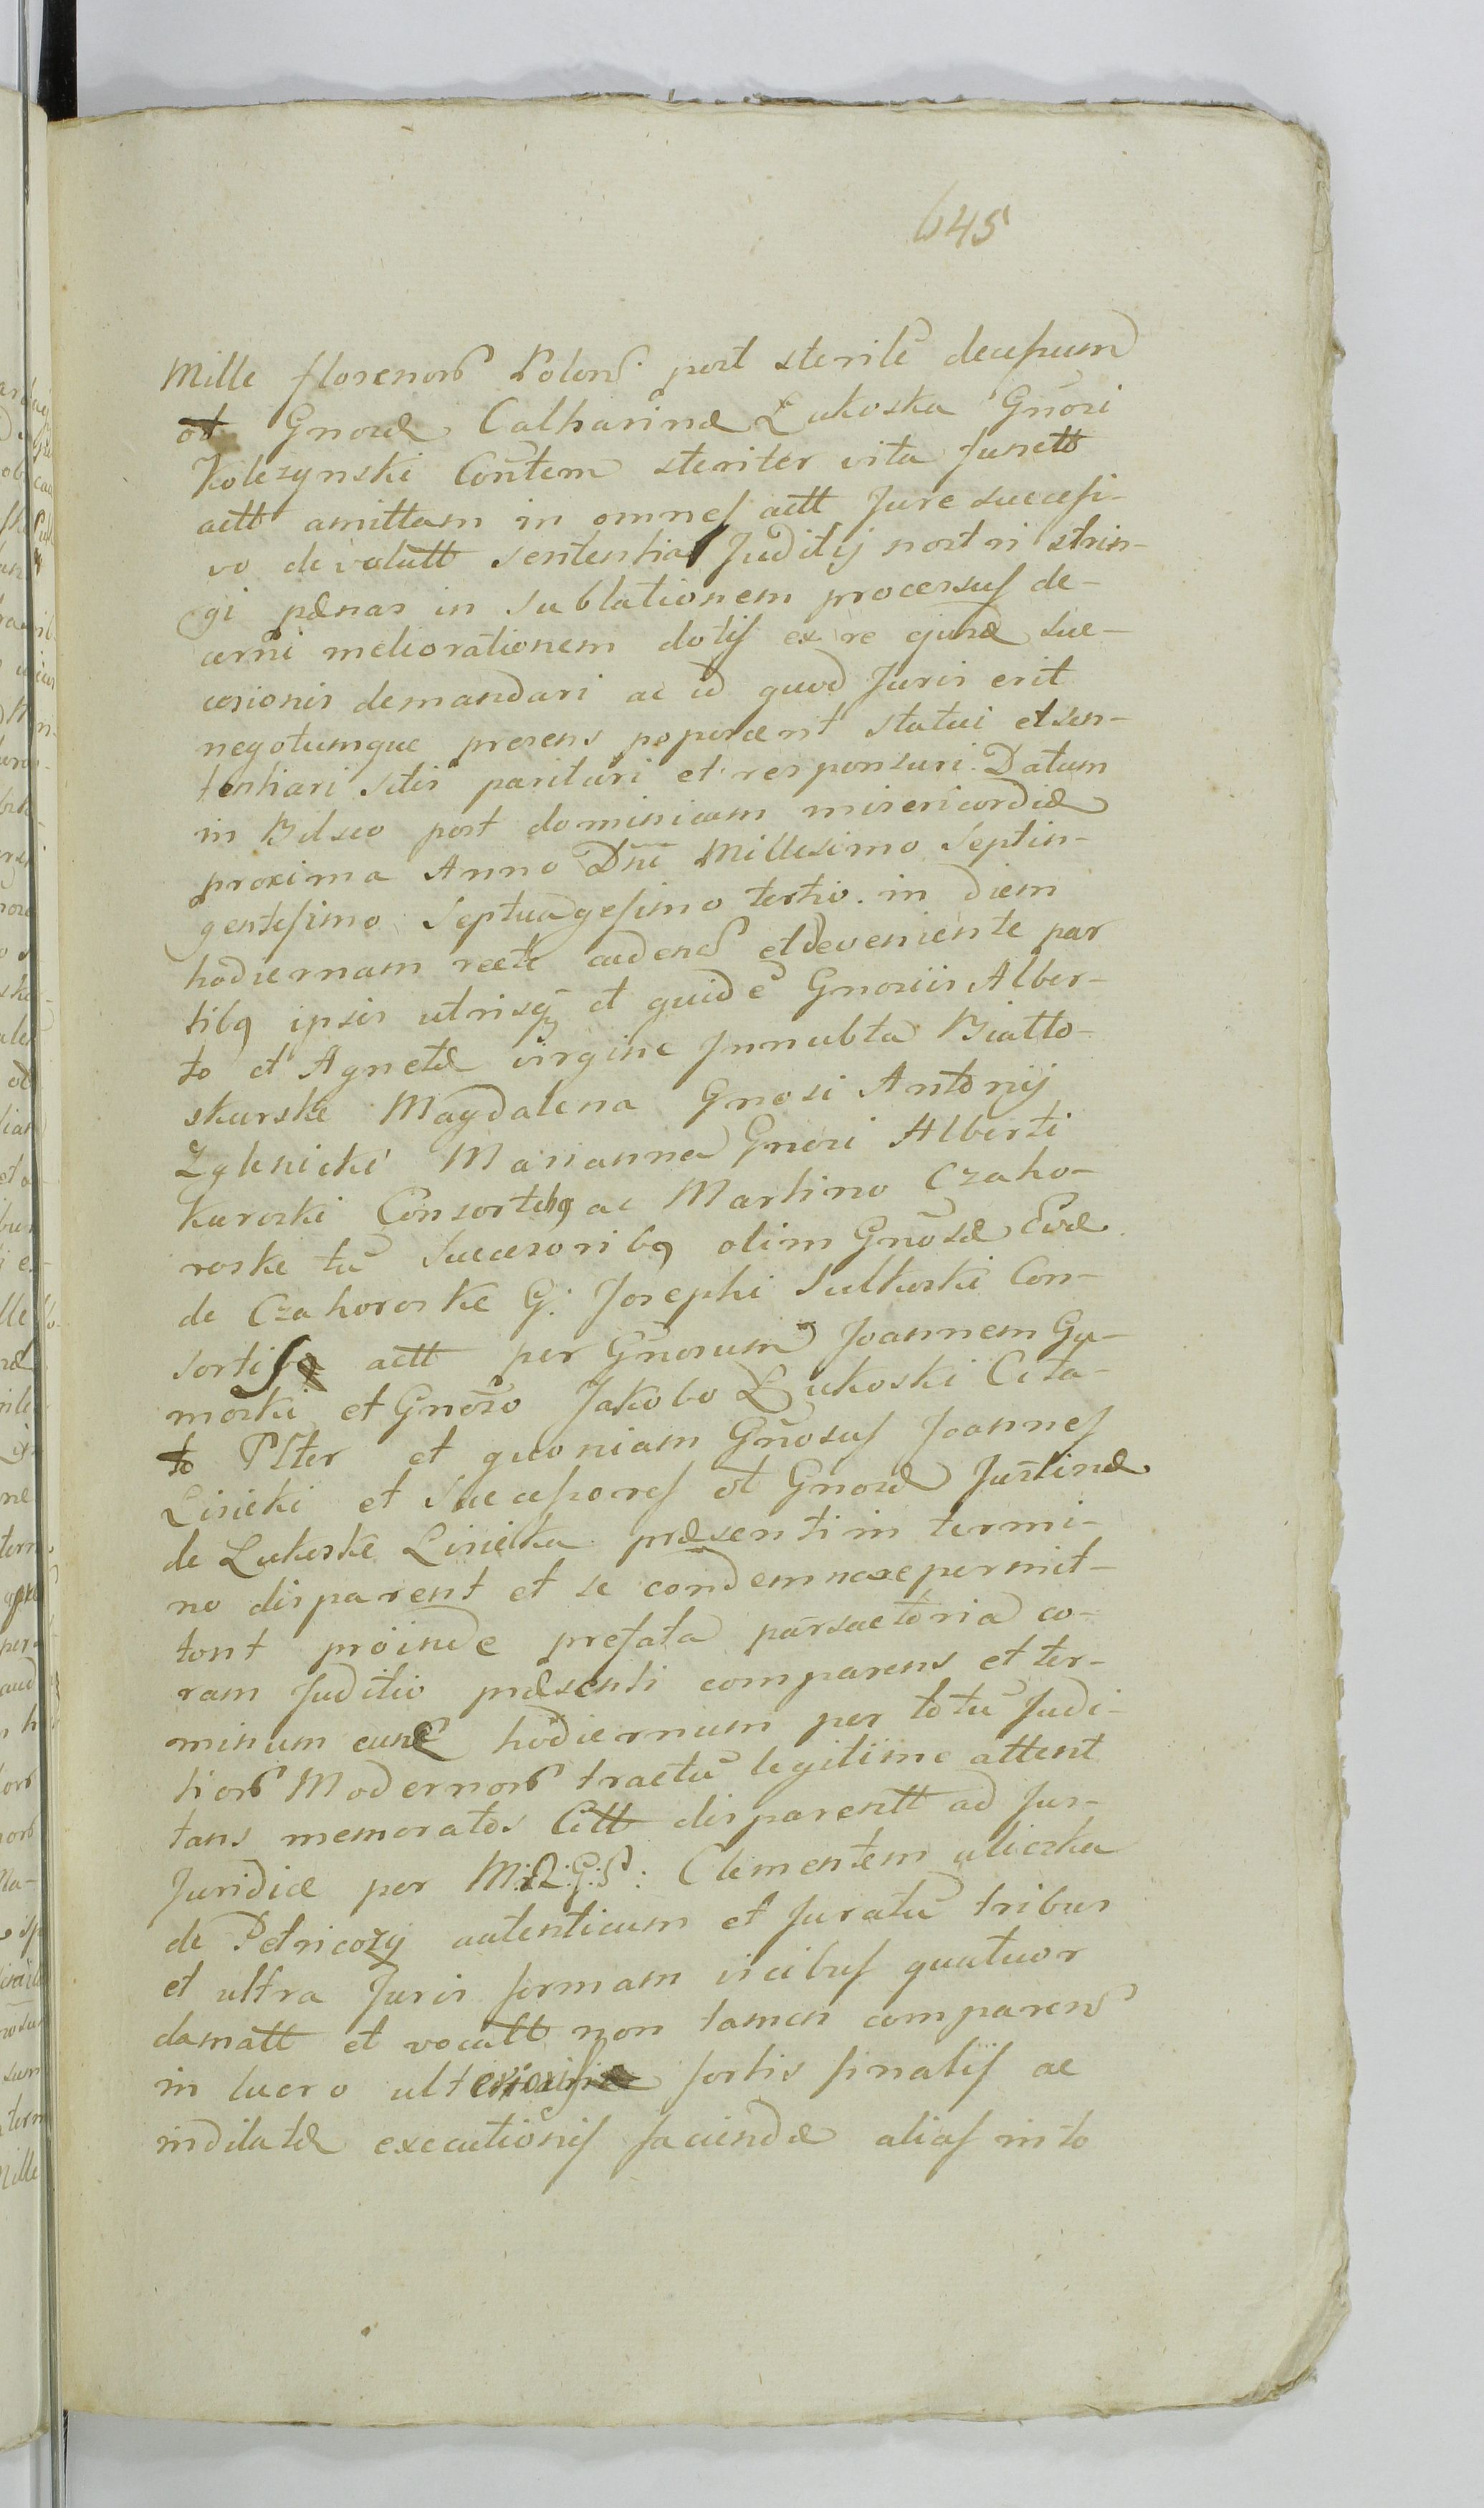 645
Mille florenorб Polonб. post sterile decessum
ol Gnosæ Catharinæ Łukoska Gn̄osi
Kolczynski Con̄tem steriter vita functt
actt amittam in omnes actt Jure successi-
vo devolutt sententias Juditij nostri strin-
gi pænas in sublationem processus de-
cerni meliorationem dotis ex re ejusd suc-
cesionis demandari ac id quod Juris erit
negotumque presens poposcerit statui et sen-
tentiari sitis parituri et responsuri. Datum
in Bilsco post dominicam misericordiæ
proxima Anno Dn̄i Millesimo Septin-
gentesimo Septuagesimo tertio. in diem
hodiernam recte cadenб et deveniente par
tibq ipsis utrisq et quidē Gnosiis Alber-
to et Agnetæ virgine Innubta Biatto-
skurske Magdalena Gnosi Antonij
Zglenicki Marianna Gnosi Alberti
Kuroski Consortibq ac Martino Czaho-
roske tū Succesoribq olim Gn̄osæ Evæ
de Czahoroske G: Josephi Sulkoski Con-
sortis actt per Gn̄osum Joannem Gu-
moski et Gn̄oso Jakobo Łukoski Cita-
to Plter et quoniam Gn̄osus Joannes
Lisicki et Successores ol Gnosæ Justinæ
de Lukoske Lisicka præsenti in termi-
no disparent et se condemnare permit-
tont proinde prefata pars actoria co-
ram Juditio præsenti comparens et ter-
minum eund hodiernum per totū Judi-
tiorб Modernorб tractū legitime attent
tans memoratos Citt disparentt ad Jur-
Juridicæ per M:R:G:S: Clementem uliczka
de Petricozy autenticum et Juratū tribus
et ultra Juris formam vicibus quatuor
clamatt et vocatt non tamen comparenб
in lucro sortis finalis ac
indilatæ executionis faciendæ alias in to